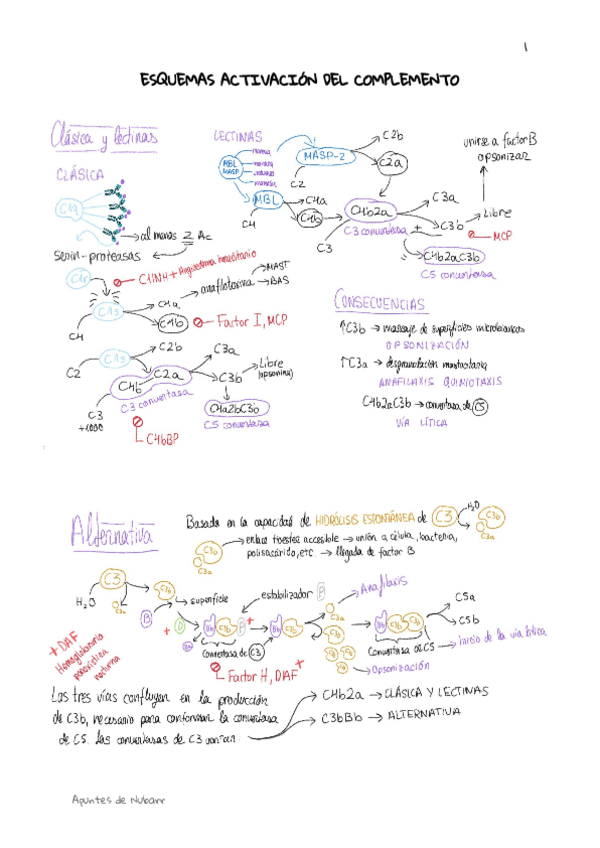 1
ESQUEMAS ACTIVACIÓN DEL COMPLEMENTO
Clásica y lectinas
CLÁSICA
C1q
al menos 2 Ac
serin-proteasas
C1r
C1INH → Angioedema hereditario
C1s
C4
C4a → anafilotoxina
MAST
BAS
C4b
Factor I, MCP
C1s
C2
C2b
C4b C2a
C3 convertasa
C3
+1000
C4bBP
C3a
C3b
Libre
(opsonina)
C4a2bC3b
C5 convertasa
LECTINAS
MBL
MASP
manosa
MASP-2
C2
C2b
C2a
MBL
C4
C4a
C4b
C4b2a
C3 convertasa
C3
C3a
+
C3b
Libre
unirse a factor B
opsonizar
MCP
C4b2aC3b
C5 convertasa
CONSECUENCIAS
↑C3b → marcaje de superficies microbianas
OPSONIZACIÓN
↑C3a → degranulación mastocitaria
ANAFILAXIS QUIMIOTAXIS
C4b2aC3b → convertasa de C5
VÍA LÍTICA
Alternativa
Basada en la capacidad de HIDRÓLISIS ESPONTÁNEA de C3
H2O
C3b
C3a
C3b
C3a
enlace tioester accesible → unión a célula, bacteria,
polisacárido, etc. → llegada de factor B
C3
H2O
C3a
C3b
superficie
B
+
D
Ba
Bb C3b P
+
estabilizador P
Convertasa de C3
Factor H, DAF
+
Bb C3b
C3a
Anafilaxis
C3b
Opsonización
Bb C3b C3b
Convertasa de C5
C5a
C5b
Inicio de la vía lítica
+ DAF
Hemoglobinuria
paroxística
nocturna
Las tres vías confluyen en la producción
de C3b, necesario para conformar la convertasa
de C5. Las convertasas de C3 varían:
C4b2a → CLÁSICA Y LECTINAS
C3bBb → ALTERNATIVA
Apuntes de Nubarr